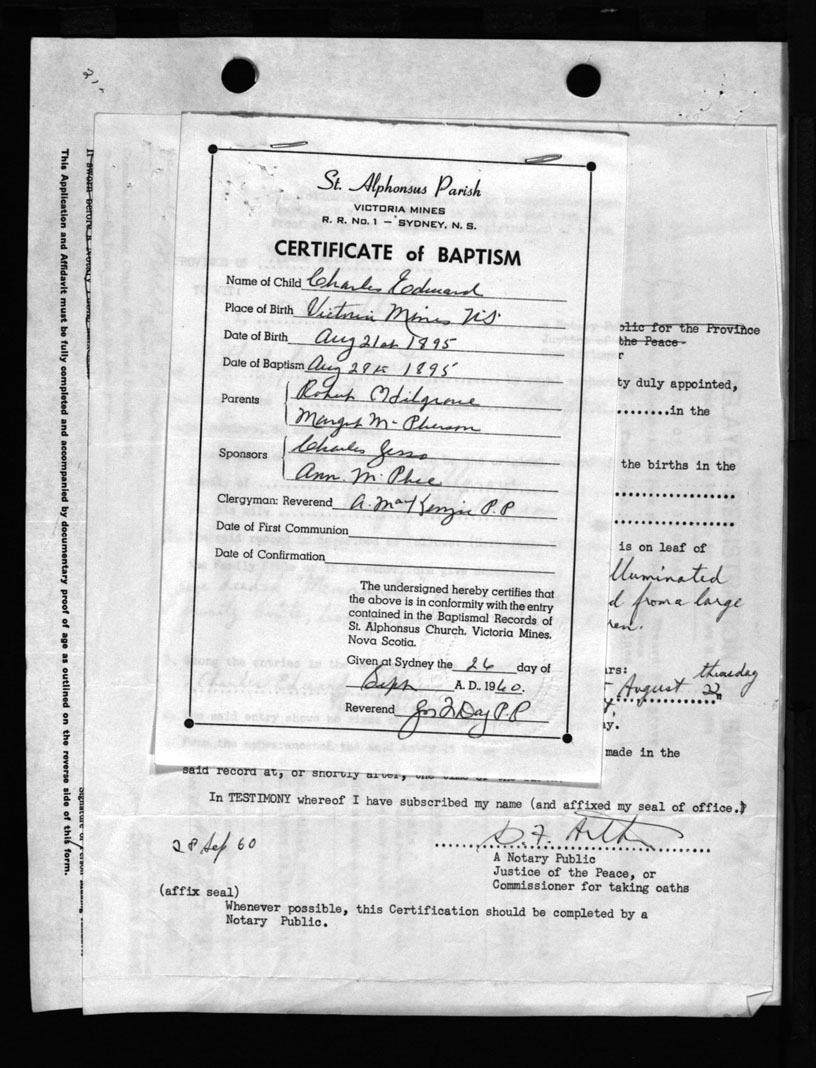 This Application and Affidavit must be fully completed and accompanied by documentary proof of age as outlined on the reverse side of this form.
St. Alphonsus Parish
VICTORIA MINES
R. R. No. 1 — SYDNEY, N. S.
CERTIFICATE of BAPTISM
Name of Child Charles Edward
Place of Birth Victoria Mines N.S.
Date of Birth Aug 21st 1895
Date of Baptism Aug 29th 1895
Parents Robert
Margt McPherson
Sponsors Charles Jesso
Ann McPhee
Clergyman: Reverend A. MacKenzie P.P
Date of First Communion
Date of Confirmation
The undersigned hereby certifies that
the above is in conformity with the entry
contained in the Baptismal Records of
St. Alphonsus Church, Victoria Mines,
Nova Scotia.
Given at Sydney the 26 day of
Sept A. D. 1960.
Reverend Jos F Day P.P
blic for the Province
the Peace
r
ty duly appointed,
in the
the births in the
is on leaf of
lluminated
d from a large
ren.
ars:
thursday
August 22
ay.
made in the
said record at, or shortly after, the time of the
In TESTIMONY whereof I have subscribed my name (and affixed my seal of office.)
28 Sep 60
A Notary Public
Justice of the Peace, or
Commissioner for taking oaths
(affix seal)
Whenever possible, this Certification should be completed by a
Notary Public.